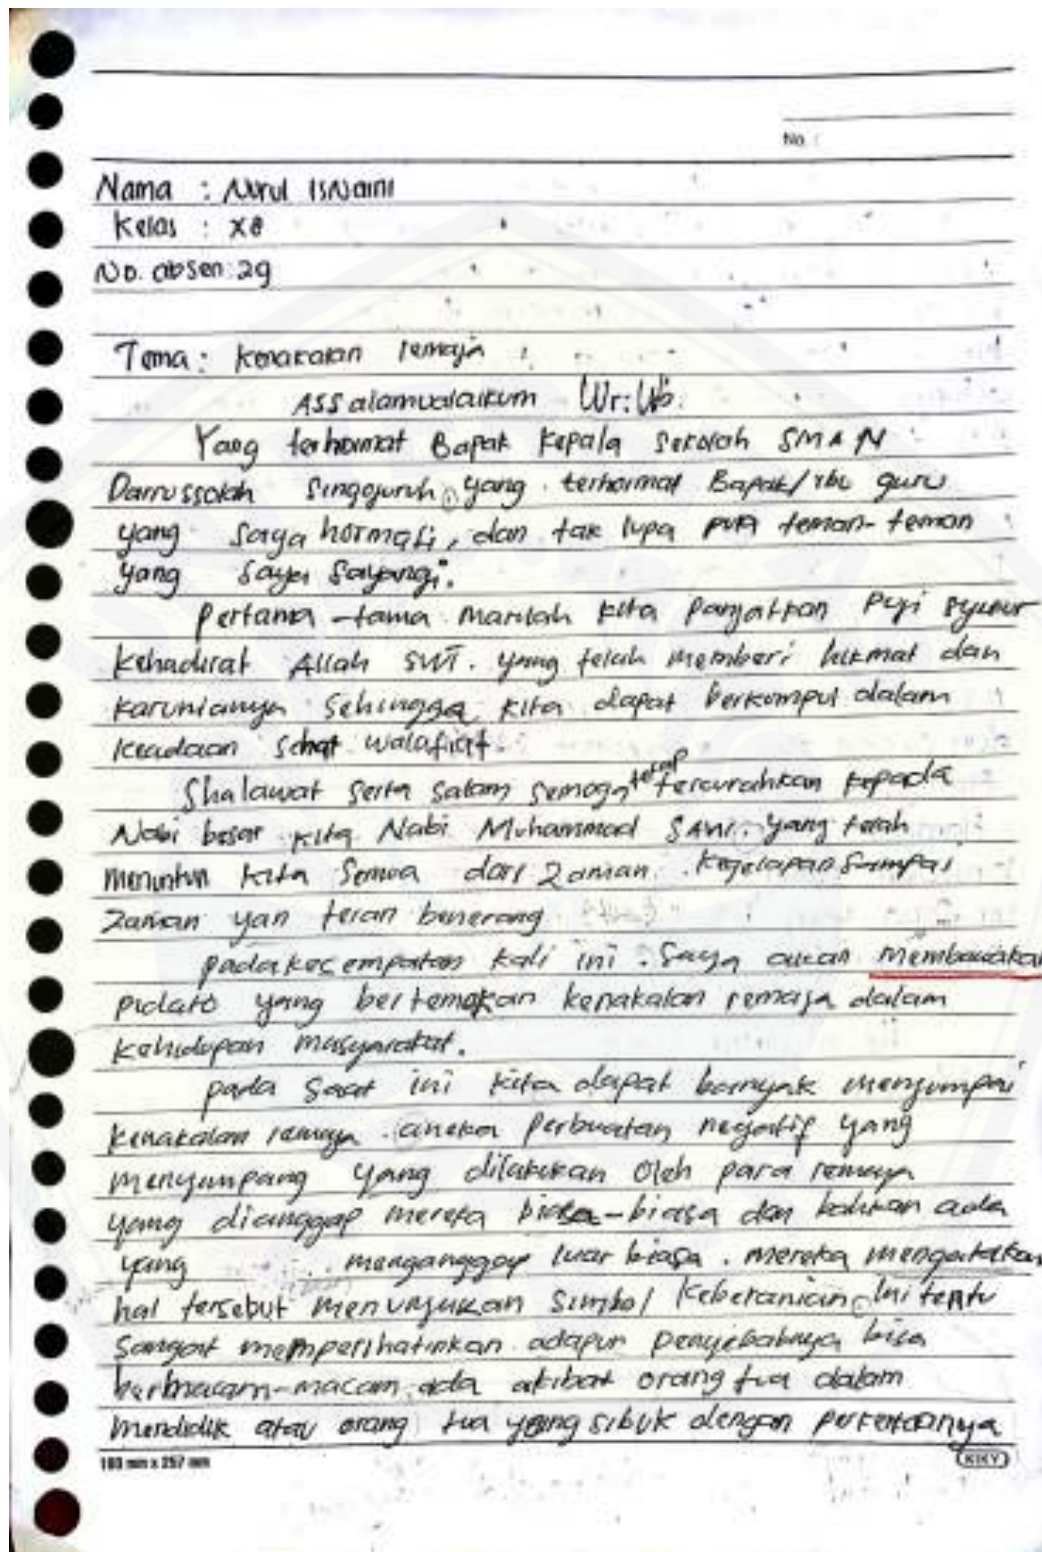 No. :
Nama : Nurul Isnaini
Kelas : X8
No. absen : 29
Tema : Kenakalan remaja
Assalamualaikum Wr. Wb.
Yang terhormat Bapak Kepala Sekolah SMA N
Darrussolah Singojuruh, yang terhormat Bapak/ibu guru
yang saya hormati, dan tak lupa pula teman-teman
yang saya sayangi.
Pertama-tama marilah kita panjatkan puji syukur
kehadirat Allah SWT. yang telah memberi hikmat dan
karunianya sehingga kita dapat berkumpul dalam
keadaan sehat walafiat.
Shalawat serta salam semoga tetap tercurahkan kepada
Nabi besar kita Nabi Muhammad SAW. yang telah
menuntun kita semua dari zaman kegelapan sampai
zaman yan teran benerang
pada kesempatan kali ini. Saya akan membawakan
pidato yang bertemakan kenakalan remaja dalam
kehidupan masyarakat.
pada saat ini kita dapat banyak menjumpai
kenakalan remaja. aneka perbuatan negatif yang
menyimpang yang dilakukan oleh para remaja
yang dianggap mereka biasa-biasa dan bahkan ada
yang menganggap luar biasa. mereka mengatakan
hal tersebut menunjukan simbol keberanian, ini tentu
sangat memperihatinkan adapun penyebabnya bisa
bermacam-macam, ada akibat orang tua dalam
mendidik atau orang tua yang sibuk dengan perkerjaannya
180 mm x 257 mm
KIKY